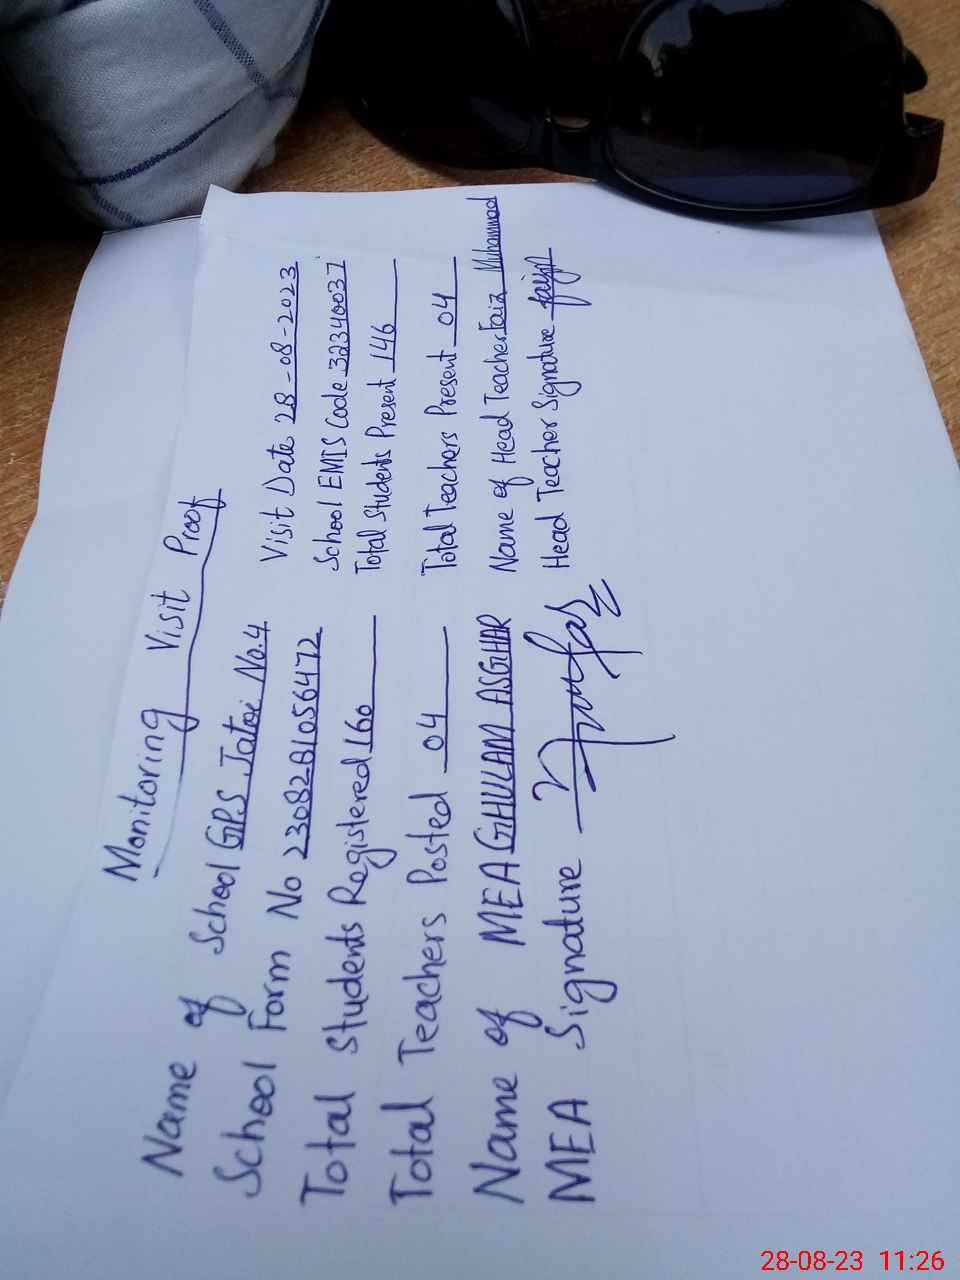 Monitoring Visit Proof
Name of School GPS Jatoi No.4 Visit Date 28-08-2023
School Form No 2308281056472 School EMIS Code 32340037
Total Students Registered 160 Total Students Present 146
Total Teachers Posted 04 Total Teachers Present 04
Name of MEA GHULAM ASGHAR Name of Head Teacher Faiz Muhammad
MEA Signature Head Teacher Signature
28-08-23 11:26